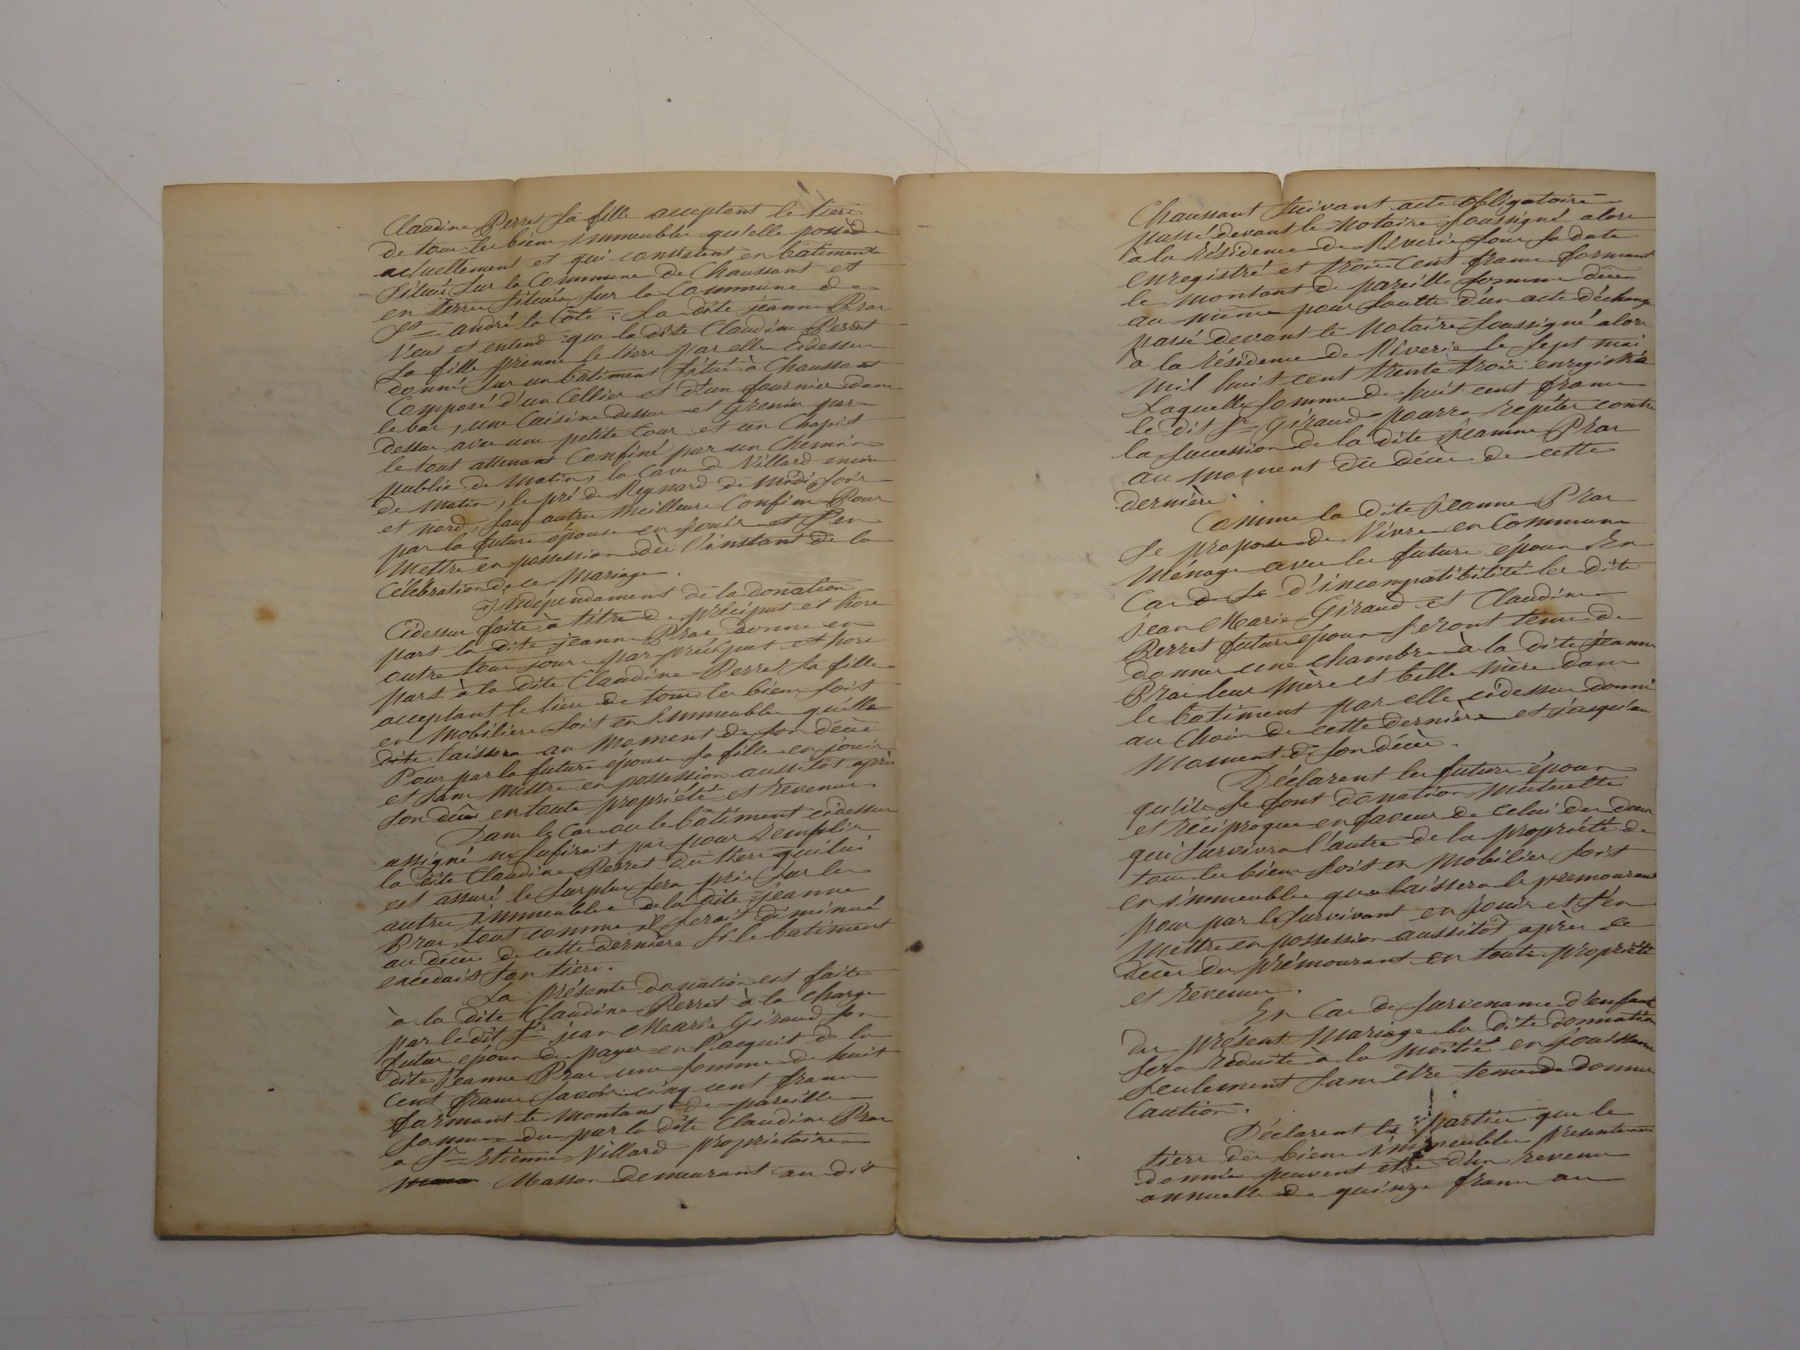 Claudine Perret sa fille acceptant le tiers
de tous les biens immeubles qu'elle possède
actuellement et qui consistent en bâtiments
situés sur la Commune de Chaussant et
en terres situées sur la Commune de
St andré la Côte. La dite jeanne Brac
Veut et entend que la dite Claudine Perret
sa fille prenne le tiers par elle cidessus
donné sur un bâtiment situé à Chaussant
Composé d'un Cellier et d'un fournier dans
le bas, une Cuisine dessus et Grenier par
dessus avec une petite Cour et un Chapit
le tout attenant Confiné par un Chemin
public de Matin, la Cour de Villard encore
de Matin, le pré de Reynard de Midi, soir
et nord, sauf autres Meilleurs Confins Pour
par la future épouse en jouir et s'en
Mettre en possession dès l'instant de la
Célébration de ce Mariage.
Indépendament de la donation
Cidessus faite à titre de préciput et hors
part la dite jeanne Brac donne en
outre toujours par préciput et hors
part à la dite Claudine Perret sa fille
acceptant le tiers de tous les biens soit
en Mobiliers soit en Immeubles qu'elle
dite laissera au Moment de son décès
Pour par la future épouse sa fille en jouir
et s'en mettre en possession aussitôt après
son décès en toute propriété et revenus
Dans le Cas ou le bâtiment cidessus
assigné ne sufirait pas pour remplir
la dite Claudine Perret du tiers qui lui
est assuré le surplus sera pris sur les
autres immeubles de la dite jeanne
Brac tout comme il serait diminué
au décès de cette dernière si le batiment
excedait son tiers.
La présente donation est faite
à la dite Claudine Perret à la charge
par le dit Sr jean Marie Giraud son
futur époux de payer en l'acquit de la
dite jeanne Brac une somme de huit
cent francs savoir cinq cent francs
formant le montant de pareille
somme due par la dite Claudine Brac
a Sr Etienne Villard propriétaire
Masson demeurant au dit
Chaussant suivant acte obligatoire
passé devant le notaire soussigné alors
a la résidence de Riverie sous sa date
enregistré et trois cent francs formant
le montant de pareille somme dûe
au même pour soulte d'un acte d'échange
passé devant le notaire soussigné alors
à la résidence de Riverie le sept mai
mil huit cent trente trois enregistré
Laquelle somme de huit cent francs
le dit Sr Giraud pourra repéter contre
la succession de la dite jeanne Brac
au moment du décès de cette
dernière.
Comme la dite jeanne Brac
se propose de Vivre en Commun
Ménage avec les futurs époux En
Cas de d'incompatibilité les dits
jean Marie Giraud et Claudine
Perret futurs époux seront tenus de
donner une chambre à la dite jeanne
Brac leur Mère et belle Mère dans
le bâtiment par elle cidessus donné
au Choix de cette dernière et jusqu'au
Moment de son décès.
Déclarent les futurs époux
qu'ils se font donation mutuelle
et réciproque en faveur de celui des deux
qui survivra l'autre de la propriété de
tous les biens soit en Mobilier soit
en immeubles que laissera le premourant
pour par le survivant en jouir et s'en
Mettre en possession aussitôt après le
décès du prémourant en toute propriété
et revenus.
En Cas de survenance d'enfant
du présent Mariage la dite donnation
sera réduite a la moitié en jouissance
seulement sans être tenu de donner
Caution.
Déclarent les parties que le
tiers des biens immeubles présentement
donnés peuvent être d'un revenu
annuelle de quinze francs au